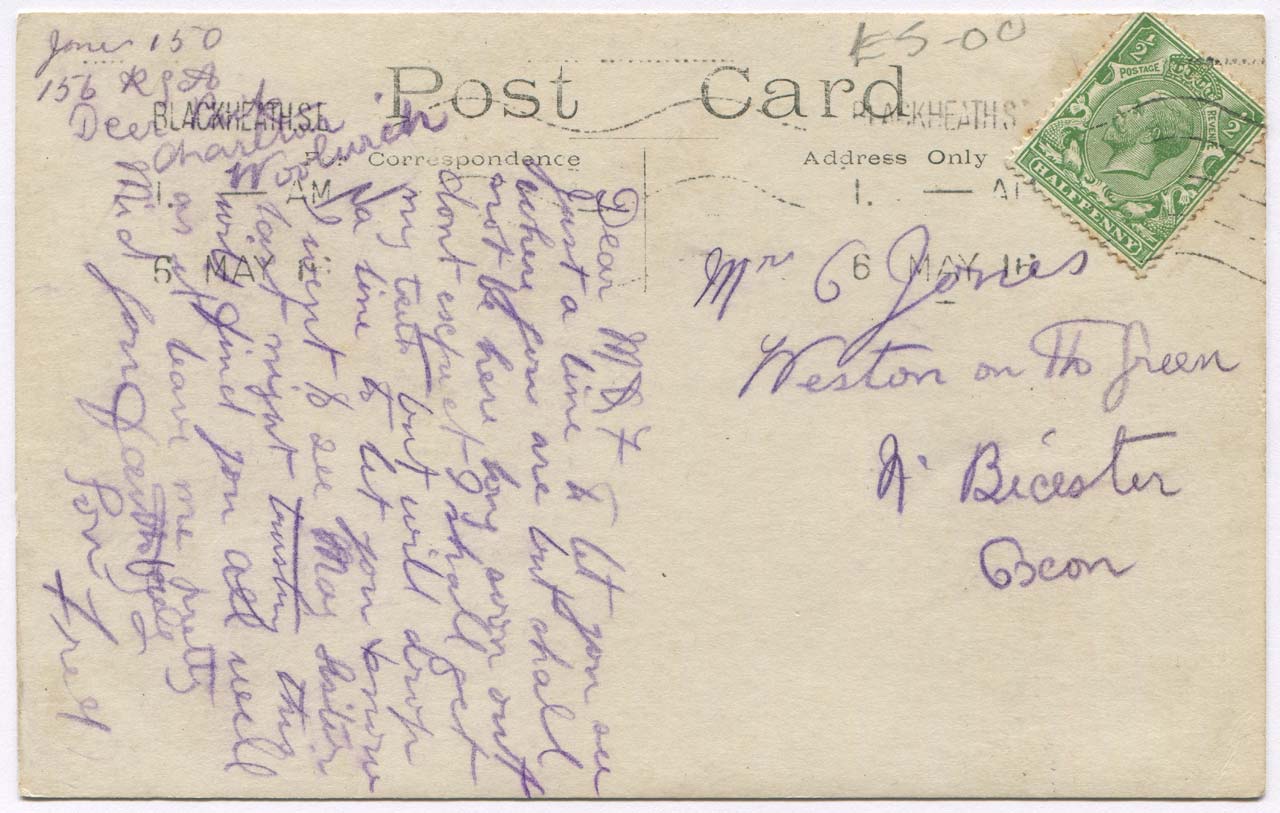 Jones 150
156 R G A
Deer Park
Charlton
Woolwich
£5-00
Post Card
For Correspondence
Address Only
BLACKHEATH.S.E.
1. — AM
6 MAY 16
BLACKHEATH.S
1. — A
6 MAY 16
½ POSTAGE
REVENUE ½
HALFPENNY
Dear M & F
Just a line to let you see
where you are but shall
not be here long own
dont expect I shall get
my teeth but will drop
a line to let you know
I went to see May sister
last night trusting this
will find you all well
as it leave me pretty
Mid fond
Son Fred
Mr G Jones
Weston on Th Green
Nr Bicester
Oxon